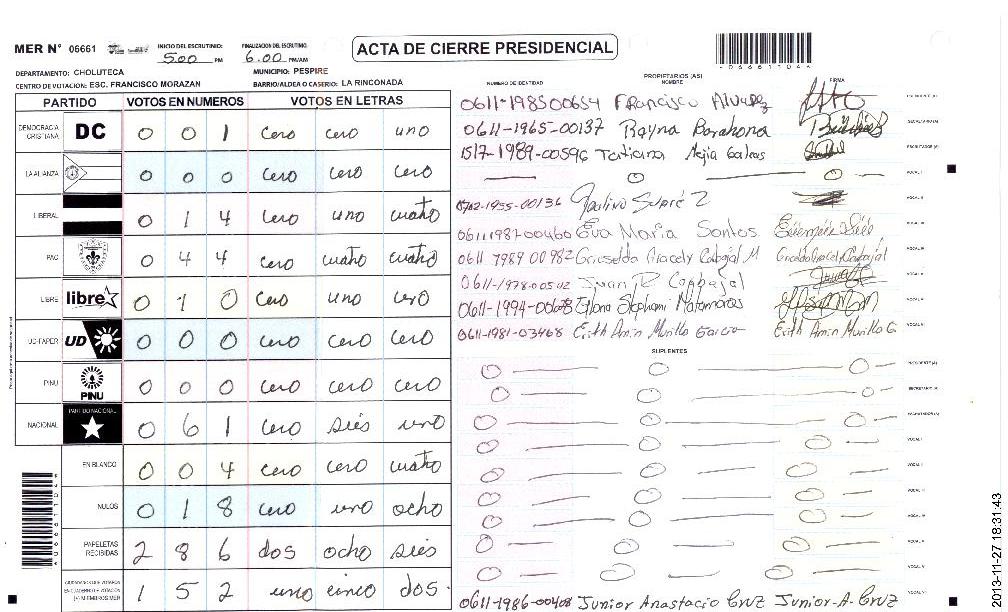 MER N° 06661 INICIO DEL ESCRUTINIO: 5:00 PM FINALIZACION DEL ESCRUTINIO: 6:00 PM/AM ACTA DE CIERRE PRESIDENCIAL
DEPARTAMENTO: CHOLUTECA MUNICIPIO: PESPIRE
CENTRO DE VOTACION: ESC. FRANCISCO MORAZAN BARRIO/ALDEA O CASERIO: LA RINCONADA
PARTIDO VOTOS EN NUMEROS VOTOS EN LETRAS
DEMOCRACIA CRISTIANA DC 0 0 1 cero cero uno
LA ALIANZA 0 0 0 cero cero cero
LIBERAL 0 1 4 cero uno cuatro
PAC 0 4 4 cero cuatro cuatro
LIBRE libre 0 1 0 cero uno cero
UD-FAPER UD 0 0 0 cero cero cero
PINU PINU 0 0 0 cero cero cero
NACIONAL PARTIDO NACIONAL 0 6 1 cero siés uno
EN BLANCO 0 0 4 cero cero cuatro
NULOS 0 1 8 cero uno ocho
PAPELETAS RECIBIDAS 2 8 6 dos ocho siés
1 5 2 uno cinco dos
NUMERO DE IDENTIDAD PROPIETARIOS (AS) NOMBRE FIRMA
0611-198500654 Francisco Alvarez
0611-1965-00137 Rayna Barahona
1517-1989-00596 Tatiana Mejia
0702-1955-00136 Paulino
0611198700460 Eva Maria Santos
0611 1989 00982 Griselda Aracely Cabajal M
0611-1978-00502 Juan R Carbajal
0611-1994-00608 Stephani Matamoros
0611-1981-03468 Erith Amin Murillo Garcia Erith Amin Murillo G
SUPLENTES
0611-1986-00408 Junior Anastacio Cruz Junior-A. Cruz
2013-11-27 18:31:43